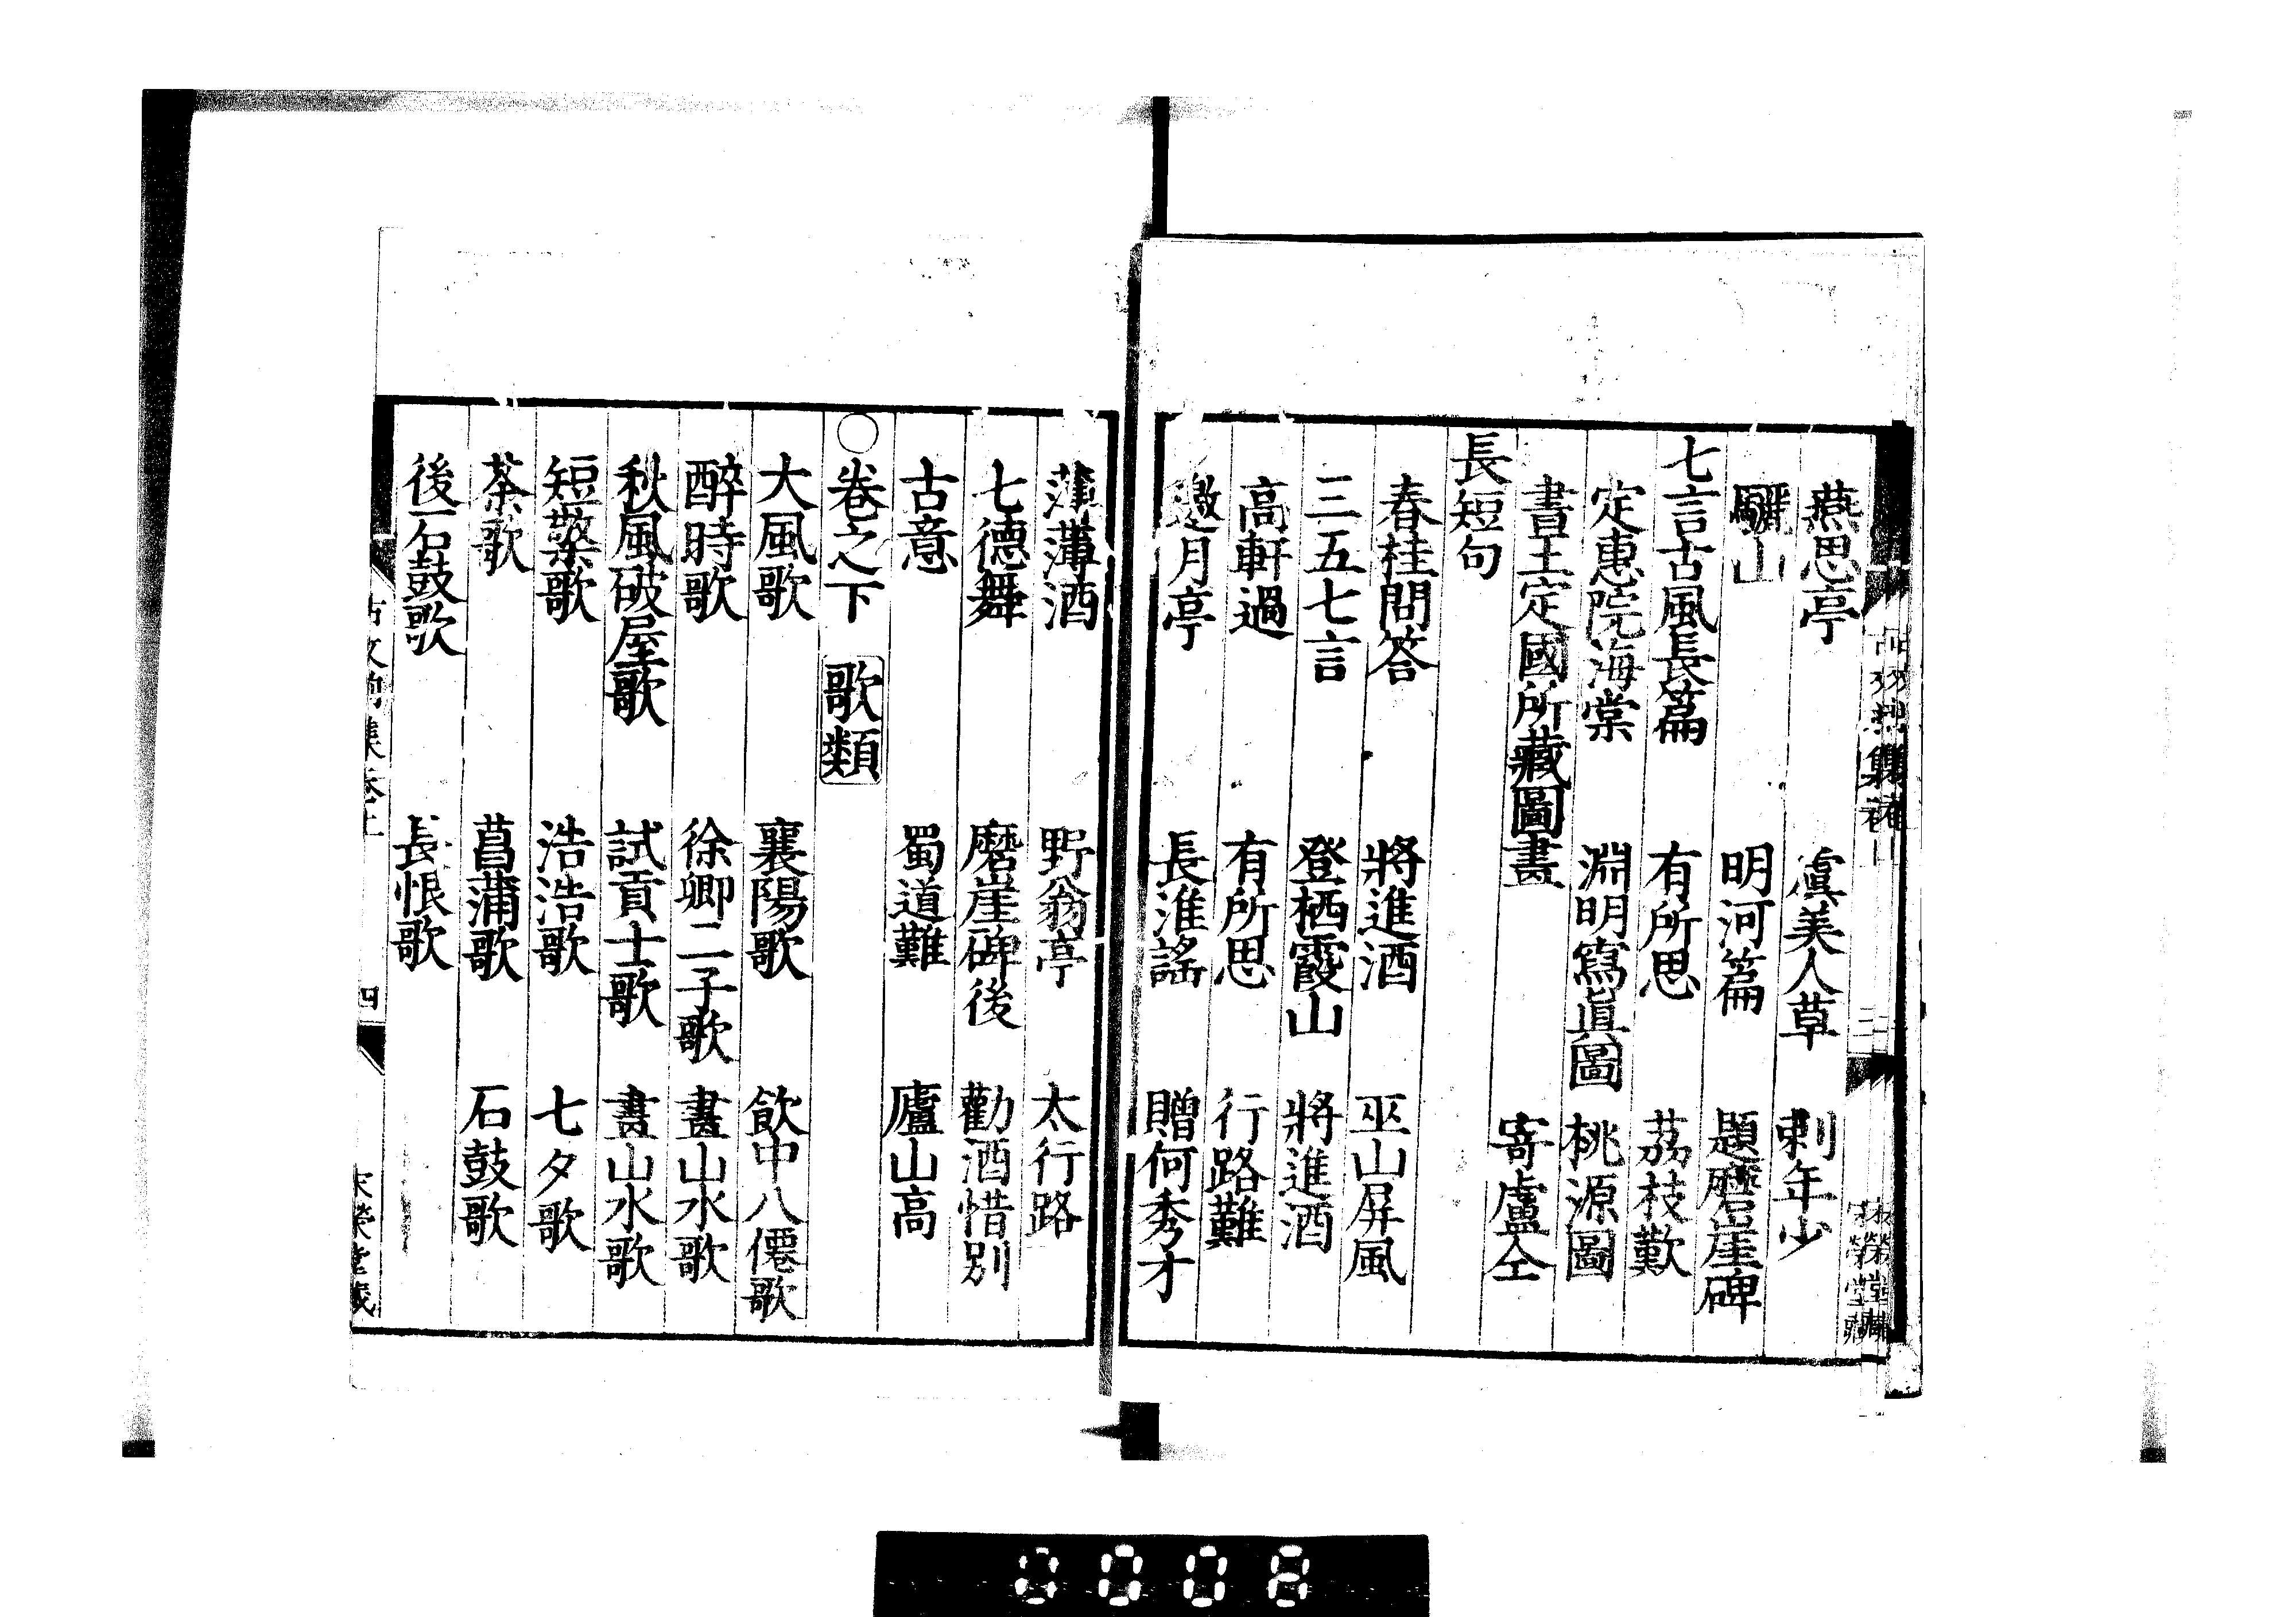 燕思亭 虞美人草 刺年少
驪山 明河篇 題磨崖碑
七言古風長篇 有所思 荔枝歎
定惠院海棠 淵明寫眞圖 桃源圖
書王定國所藏圖畫 寄盧仝
長短句
春桂問答 將進酒 巫山屏風
三五七言 登栖霞山 將進酒
高軒過 有所思 行路難
邀月亭 長淮謠 贈何秀才
薄薄酒 野翁亭 太行路
七德舞 磨崖碑後 勸酒惜別
古意 蜀道難 廬山高
○卷之下 歌類
大風歌 襄陽歌 飲中八僊歌
醉時歌 徐卿二子歌 畫山水歌
秋風破屋歌 試貢士歌 畫山水歌
短檠歌 浩浩歌 七夕歌
茶歌 菖蒲歌 石鼓歌
後石鼓歌 長恨歌
四
0008